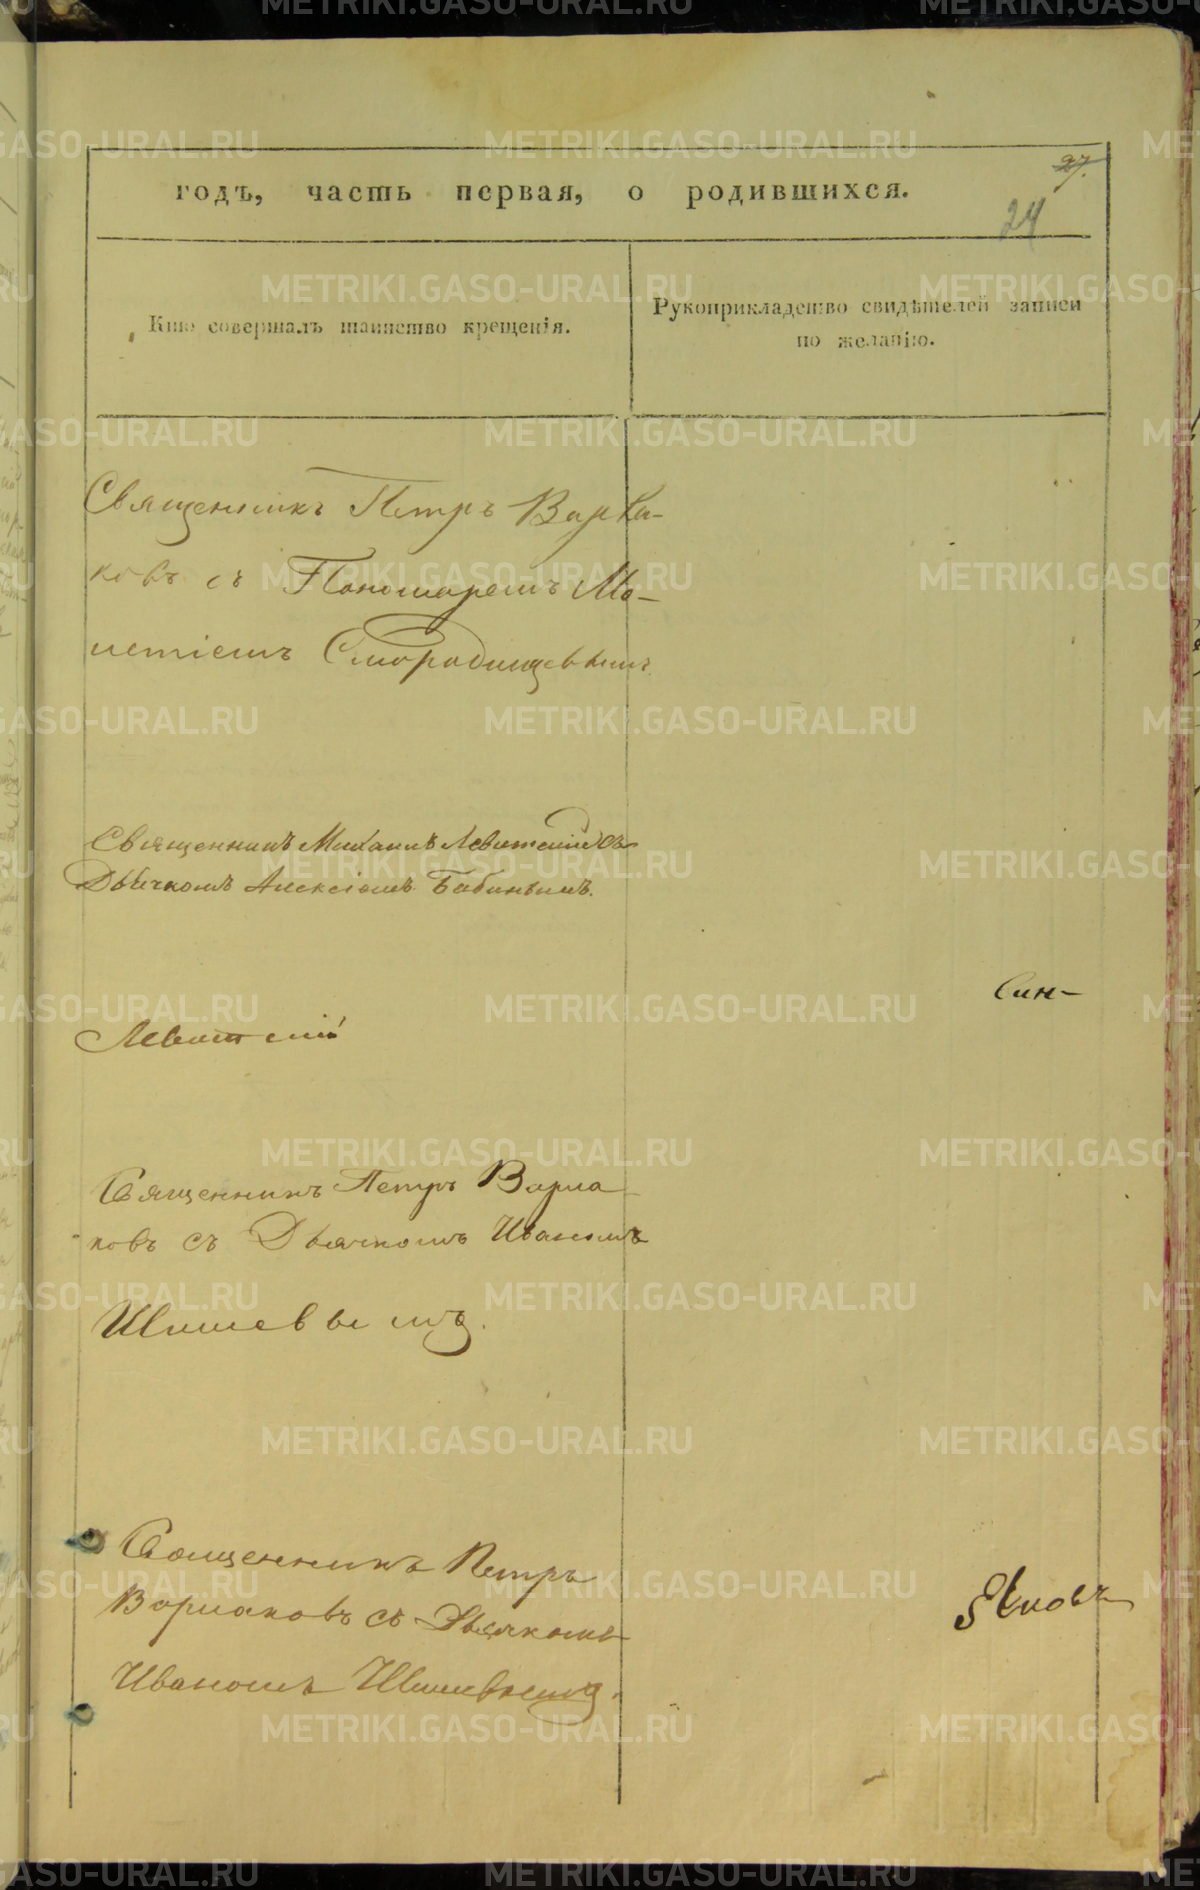 27.
годъ, часть первая, о родившихся.
24
Кто совершалъ таинство крещенія.
Рукоприкладство свидѣтелей записи
по желанію.
Священникъ Петръ
ковъ съ Пономаремъ Мо-
Смородинцевымъ
Священникъ Михаилъ Левитскій съ
Дьячкомъ Алексіемъ Бабинымъ.
Син-
Левитскій
Священникъ Петръ Варла
ковъ съ Дьячкомъ Иваномъ
Шишевымъ.
Священникъ Петръ
Варлаковъ съ Дьячкомъ
Иваномъ Шишевымъ.
METRIKI.GASO-URAL.RU